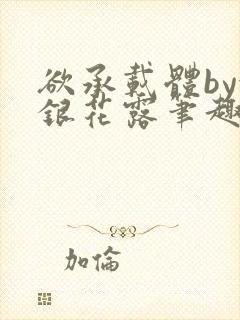 欲承載體by
銀花露筆趣
加倫